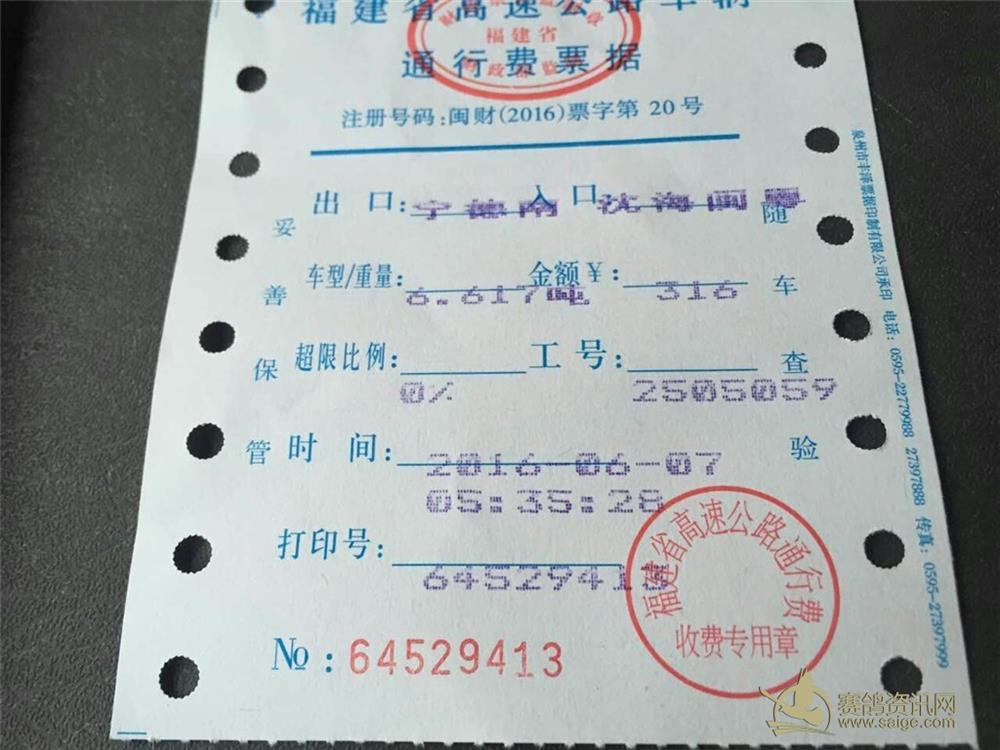 福建省高速公路车辆
通行费票据
福建省
注册号码:闽财(2016)票字第 20 号
出 口: 宁德南 入口 沈海闽
车型/重量: 6.617吨 金额￥: 316
超限比例: 0% 工 号: 2505059
时 间: 2016-06-07
05:35:28
打印号: 6452941
№: 64529413
妥善保管
随车查验
福建省高速公路通行费
收费专用章
泉州市丰泽票据印制有限公司承印 电话: 0595-22779988 27397888 传真: 0595-27397999
赛鸽资讯网
www.saige.com